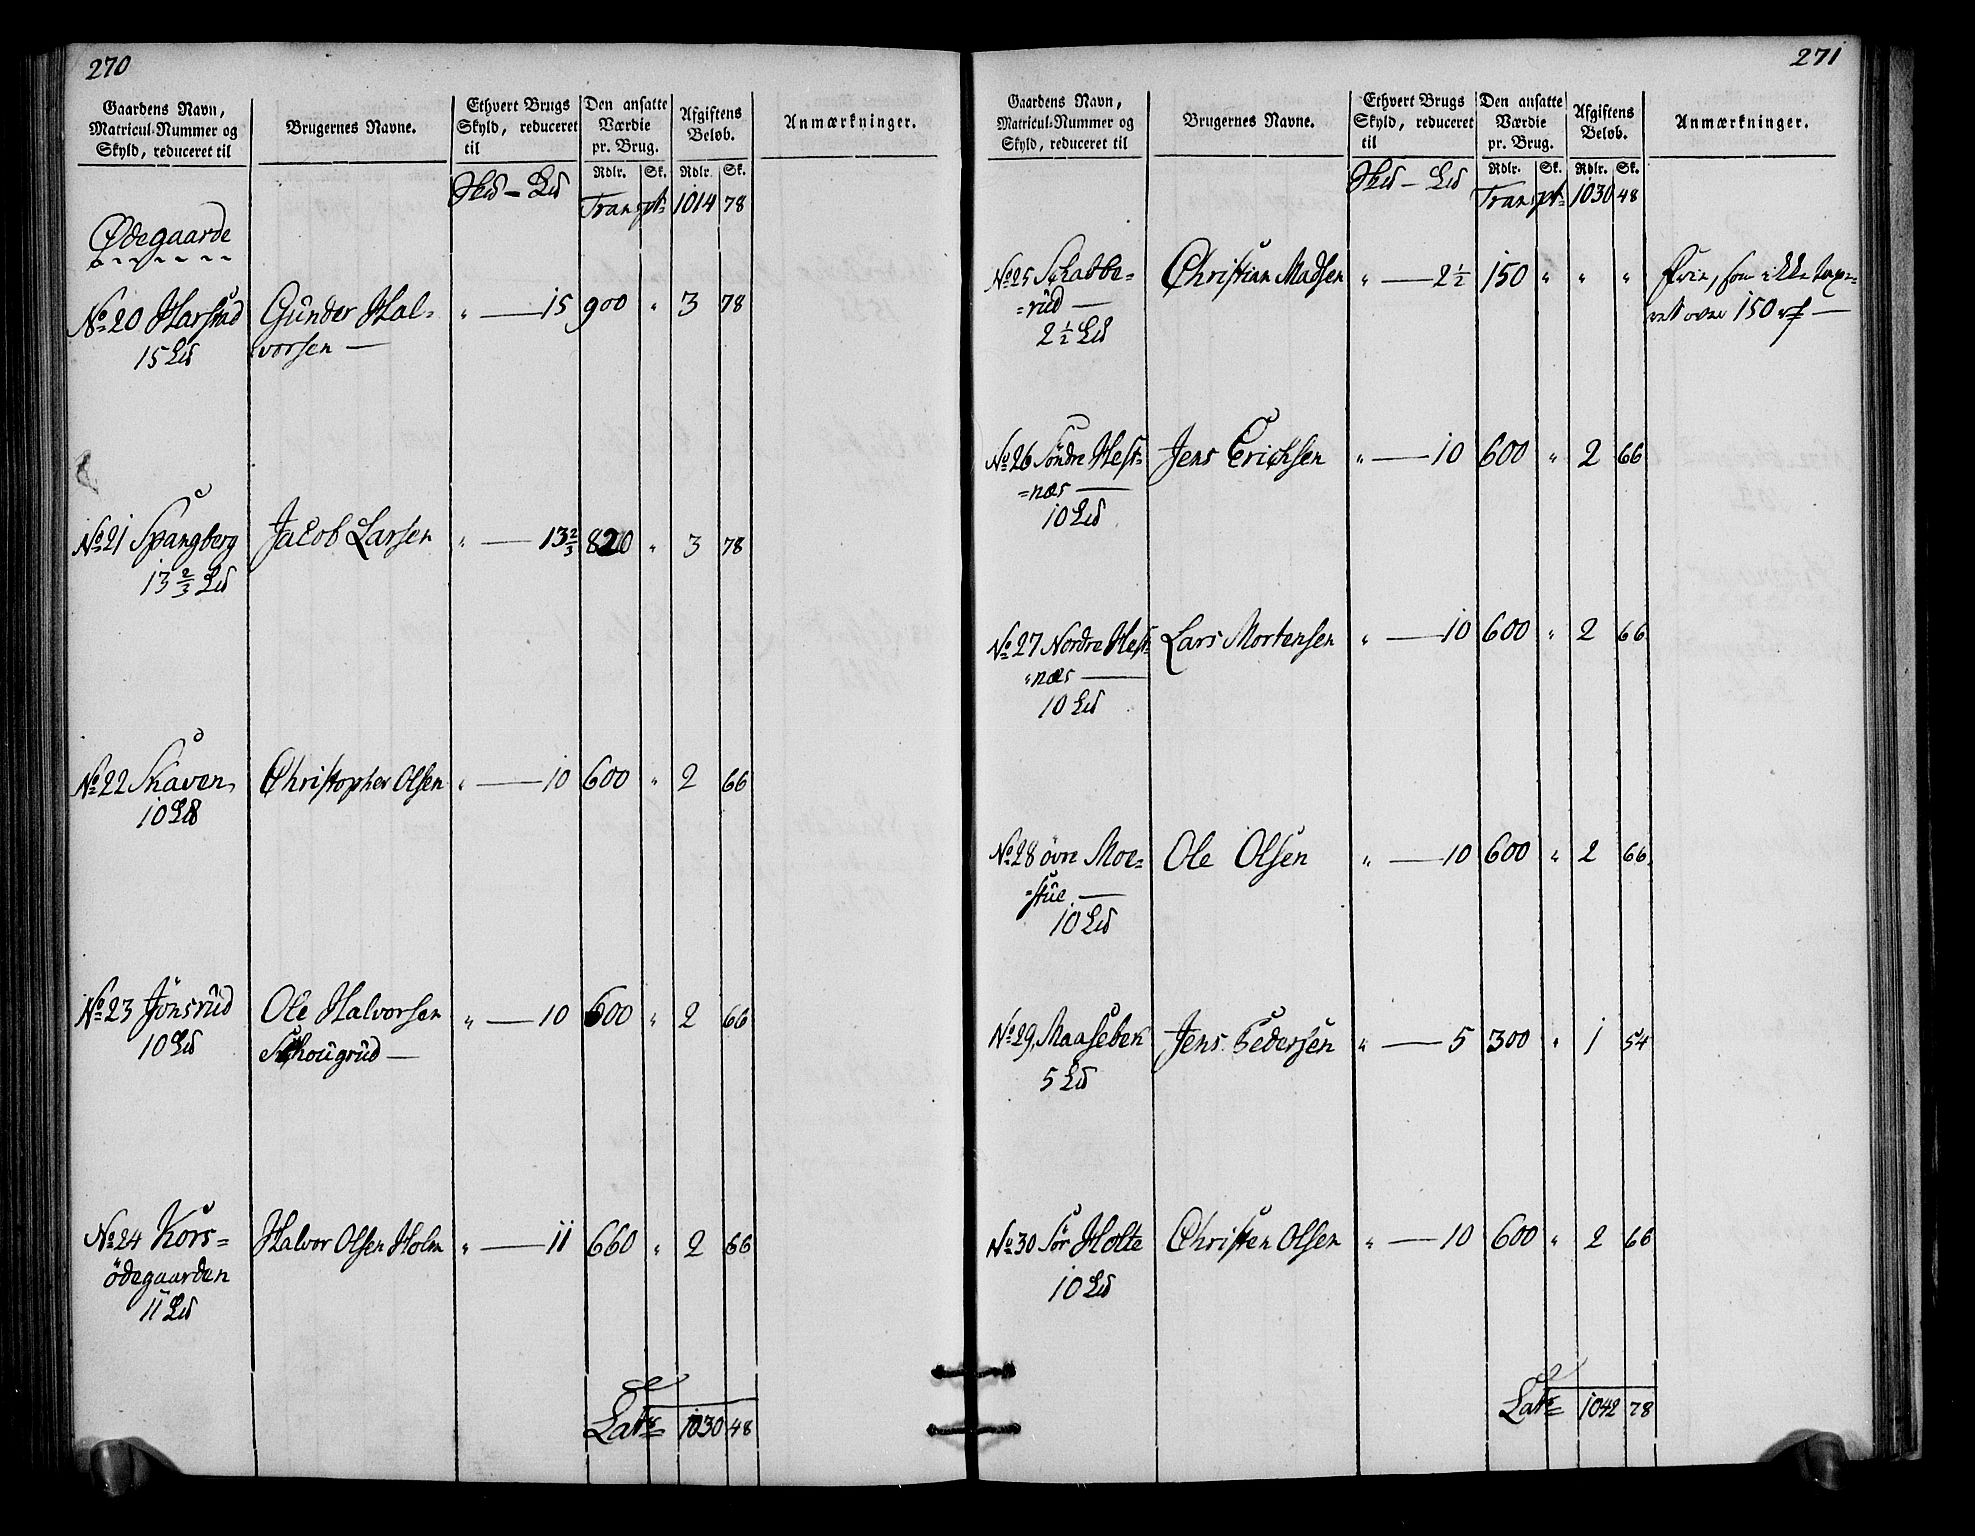 270
Gaardens Navn, Matricul-Nummer og Skyld, reduceret til
Brugernes Navne.
Ethvert Brugs Skyld, reduceret til
Den ansatte Værdie pr. Brug.
Afgiftens Beløb.
Anmærkninger.
Rdlr. Sk. Rdlr. Sk.
Transpt= 1014 78
Ødegaarde
No 20 Harstad Gunder Hal= " — 15 900 " 3 78
15 Ld vorsen —
No 21 Spangberg Jacob Larsen " — 13 2/3 820 " 3 78
13 2/3 Ld
No 22 Skaven Christopher Olsen " — 10 600 " 2 66
10 Ld
No 23 Jönsrud Ole Halvorsen " — 10 600 " 2 66
10 Ld Schougrud —
No 24 Kors= Halvor Olsen Holm " — 11 660 " 2 66
ödegaarden
11 Ld
Latr= 1030 48
271
Gaardens Navn, Matricul-Nummer og Skyld, reduceret til
Brugernes Navne.
Ethvert Brugs Skyld, reduceret til
Den ansatte Værdie pr. Brug.
Afgiftens Beløb.
Anmærkninger.
Rdlr. Sk. Rdlr. Sk.
Transpt= 1030 48
No 25 Skabbe= Christian Madsen " — 2 1/2 150 " " " Frie, som ikke taxe=
=rud — ret over 150 rd —
2 1/2 Ld
No 26 Söndre Hest= Jens Erichsen " — 10 600 " 2 66
=næs —
10 Ld
No 27 Nordre Hest= Lars Mortensen " — 10 600 " 2 66
"næs —
10 Ld
No 28 övre Moe= Ole Olsen " — 10 600 " 2 66
=stue —
10 Ld
No 29, Maaseben Jens Pedersen " — 5 300 " 1 54
5 Ld
No 30 Sör Holte Christen Olsen " — 10 600 " 2 66
10 Ld
Latr= 1042 78